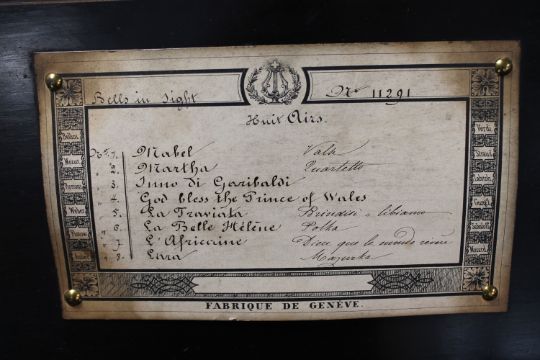 Bells in Sight
No 11291
Huit Airs.
No. 1. Mabel Valse
2. Martha Quartetto
3. Inno di Garibaldi
4. God bless the Prince of Wales
5. La Traviata Brindisi - libiamo
6. La Belle Hélène Polka
7. L'Africaine Dieu que le monde
8. Lara Mazurka
Weber
Verdi
Mozart
FABRIQUE DE GENÈVE.